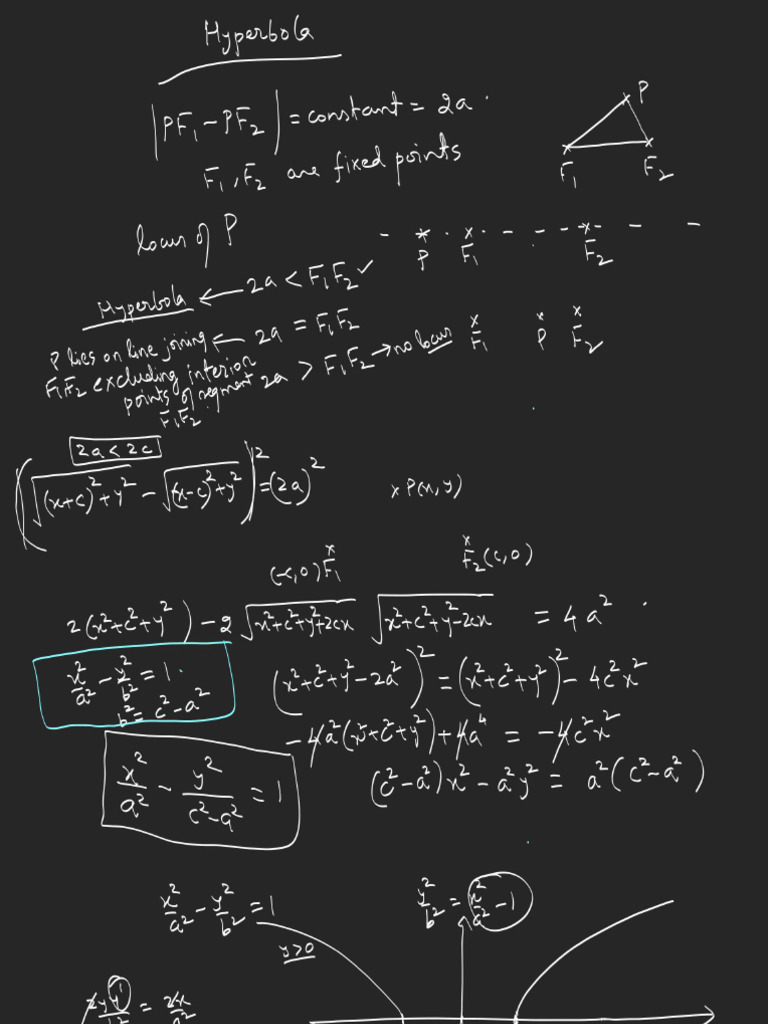 Hyperbola
|PF₁ - PF₂| = constant = 2a.
F₁, F₂ are fixed points
P
F₁ F₂
locus of P
P F₁ F₂
Hyperbola ← 2a < F₁F₂ ✓
P lies on line joining ← 2a = F₁F₂
F₁F₂ excluding interior
points of segment
F₁F₂.
2a > F₁F₂ → no locus
F₁ P F₂
2a < 2c
(√((x+c)²+y²) - √((x-c)²+y²))² = (2a)²
P(x, y)
(-c, 0) F₁ F₂ (c, 0)
2(x²+c²+y²) - 2√(x²+c²+y²+2cx) √(x²+c²+y²-2cx) = 4a².
x²/a² - y²/b² = 1.
b² = c² - a²
(x²+c²+y²-2a²)² = (x²+c²+y²)² - 4c²x²
-4a²(x²+c²+y²)+4a⁴ = -4c²x²
x²/a² - y²/(c²-a²) = 1
(c²-a²)x² - a²y² = a²(c²-a²)
x²/a² - y²/b² = 1
y²/b² = x²/a² - 1
y>0
2yy'/b² = 2x/a²